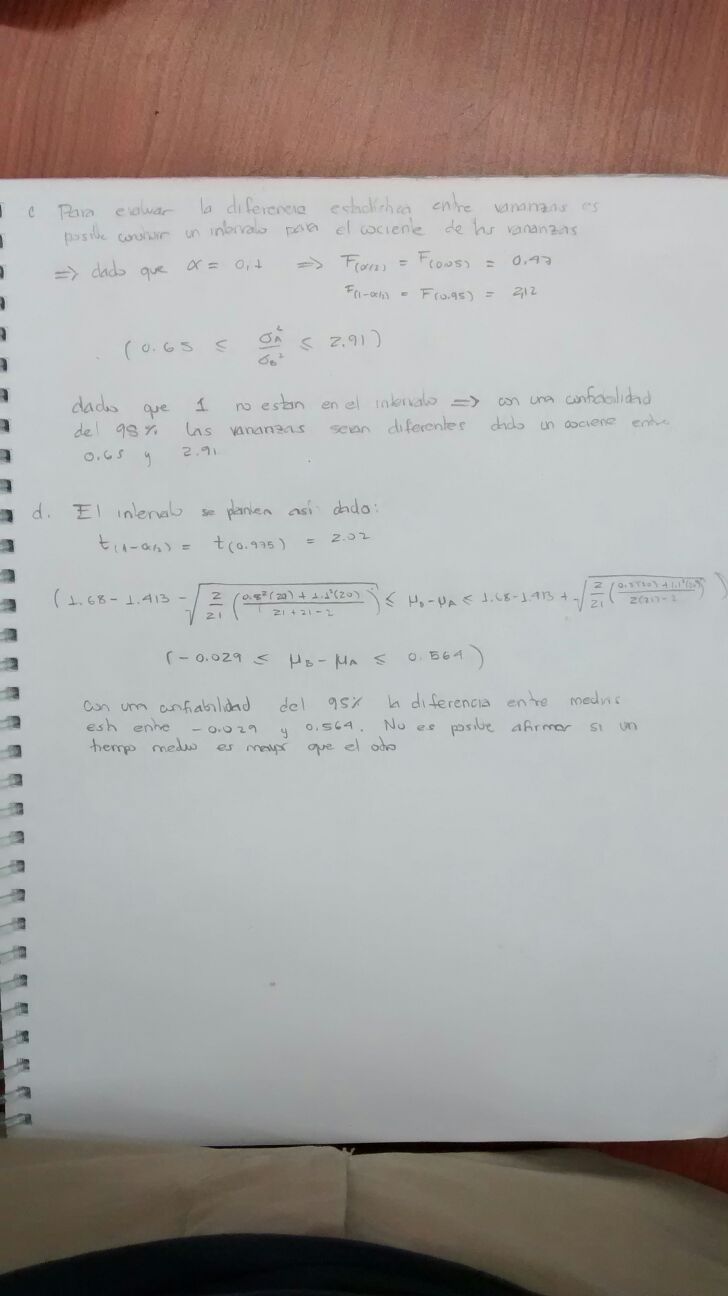 c Para evaluar la diferencia estadistica entre varianzas es
posible construir un intervalo para el cociente de las varianzas
⇒ dado que α = 0,1 ⇒ F(α/2) = F(0.05) = 0.47
F(1-α/2) = F(0.95) = 2,12
(0.65 ≤ σA²/σB² ≤ 2.91)
dado que 1 no estan en el intervalo ⇒ con una confiabilidad
del 98% las varianzas seran diferentes dado un cociene entre
0.65 y 2.91
d. El intervalo se plantea así dado:
t(1-α/2) = t(0.975) = 2.02
(1.68 - 1.413 - √(2/21 ((0.8²(20) + 1.1²(20))/(21+21-2))) ≤ μB - μA ≤ 1.68 - 1.413 + √(2/21 ((20) + 1.1²(20))/(2(21)-2)))
(-0.029 ≤ μB - μA ≤ 0.564)
Con una confiabilidad del 95% la diferencia entre medias
esta entre -0.029 y 0.564. No es posible afirmar si un
tiempo medio es mayor que el otro